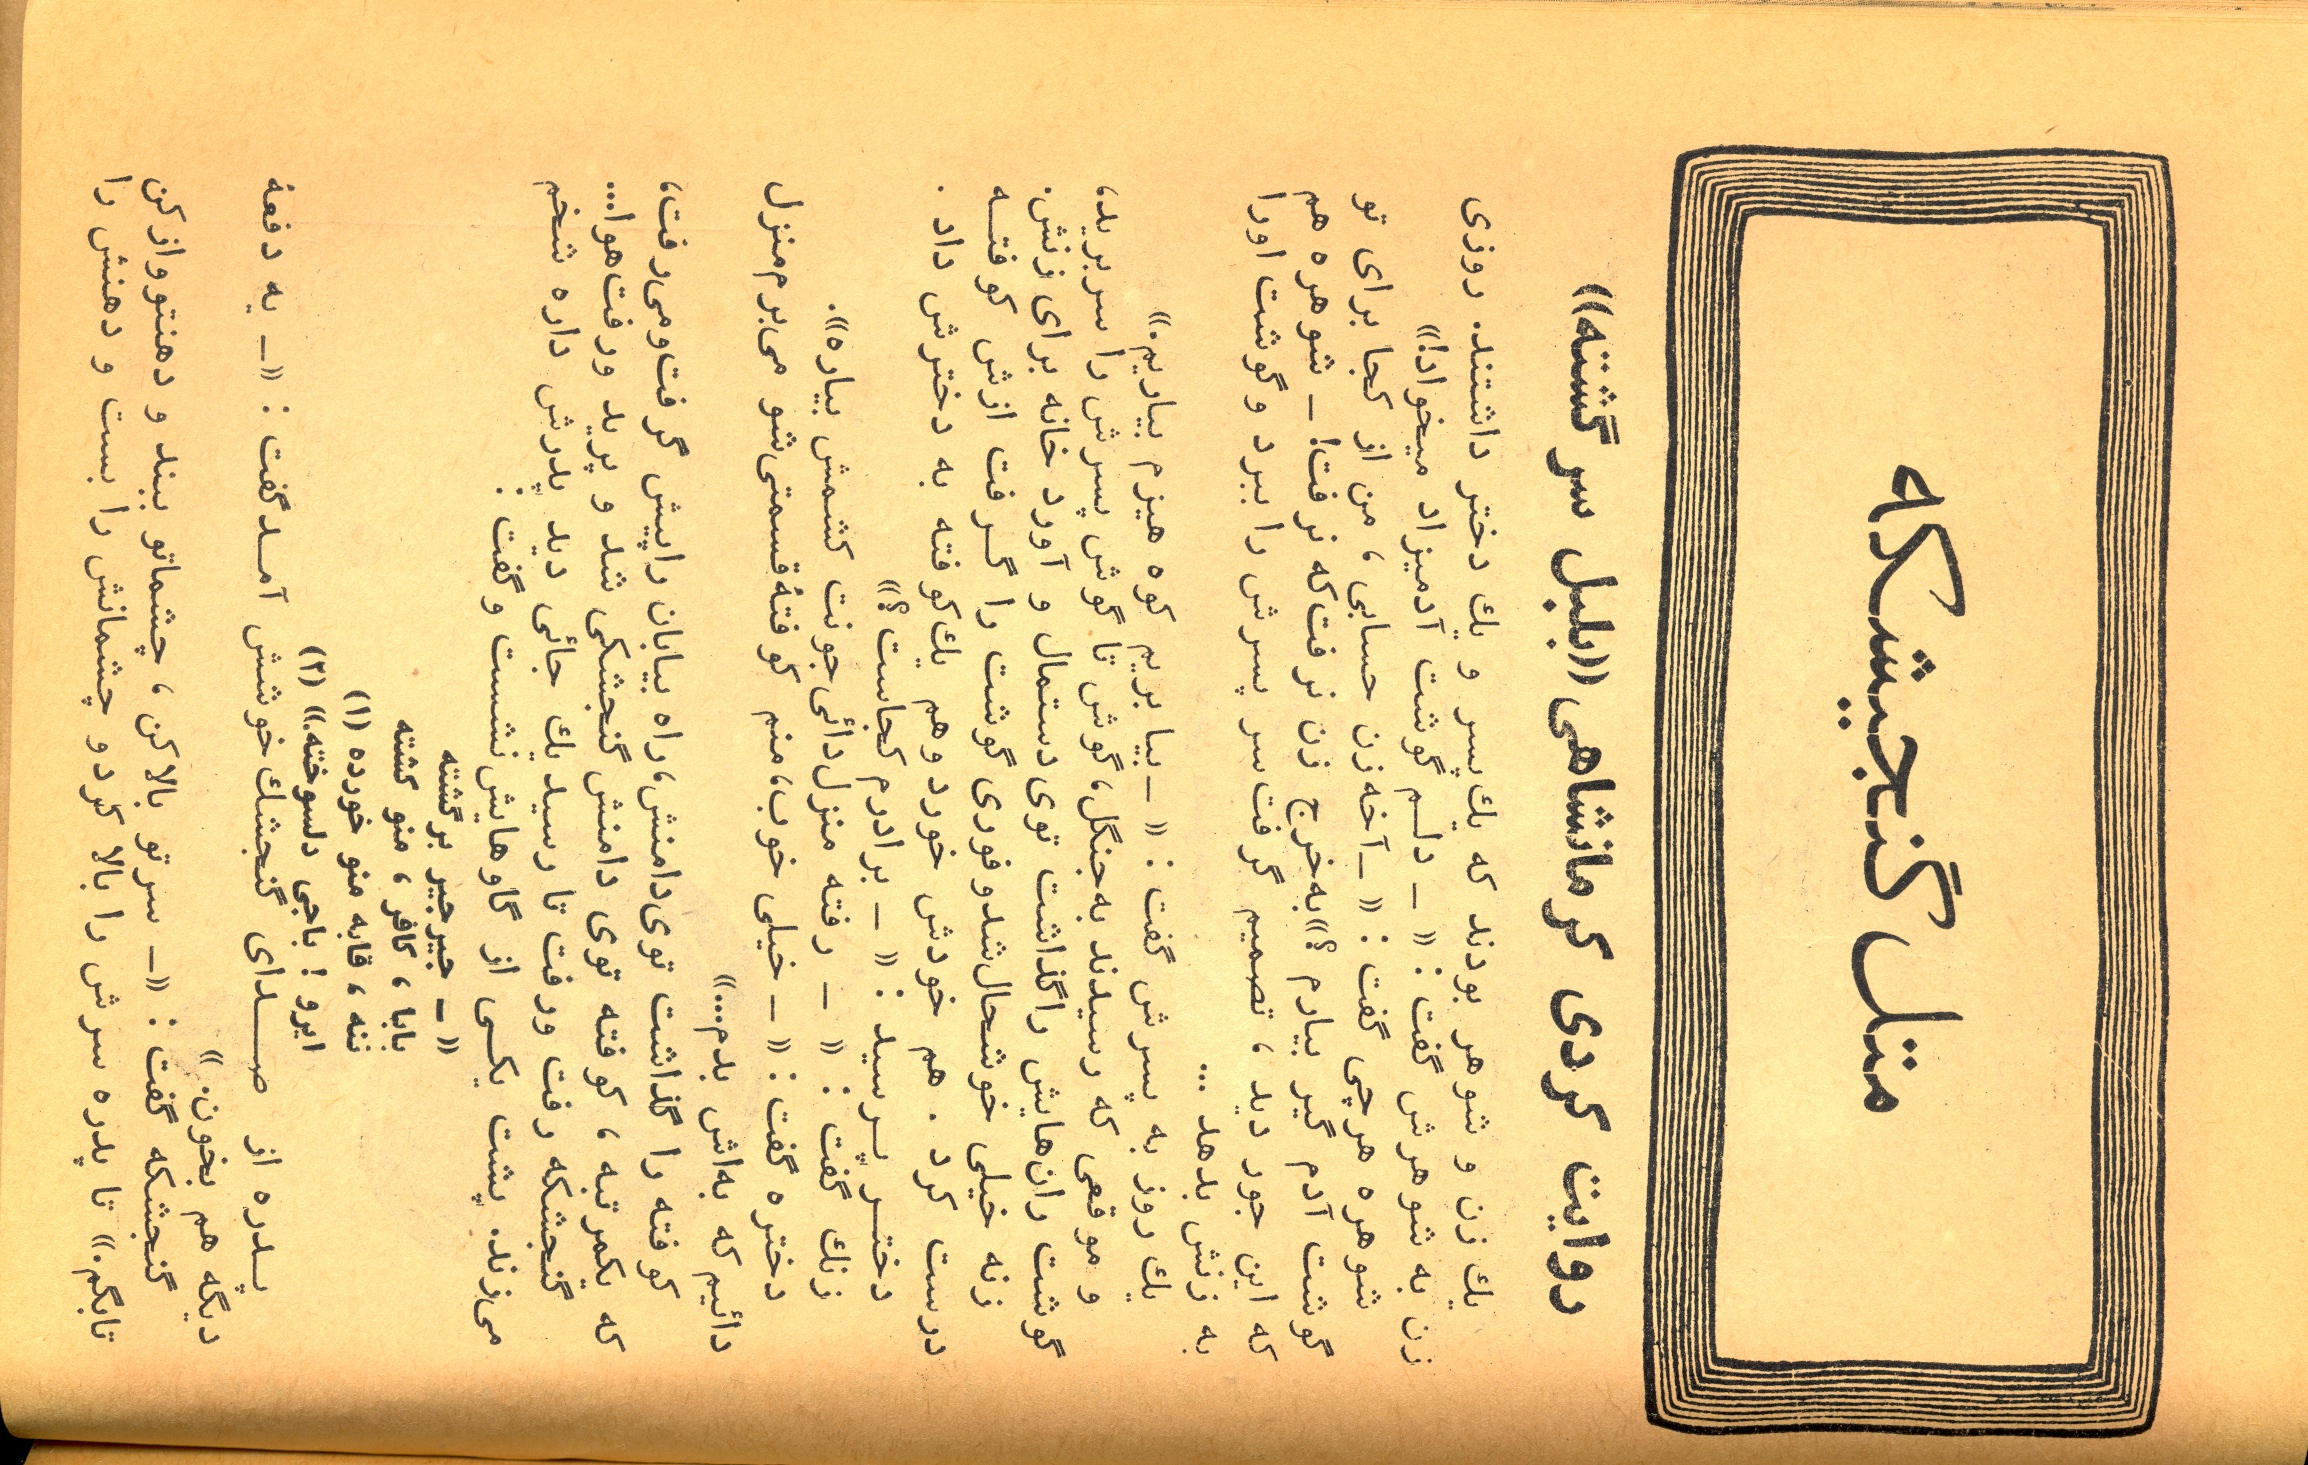 متل گنجیشکه
روایت کردی کرمانشاهی «بلبل سر گشته»
یك زن و شوهر بودند که یك پسر و یك دختر داشتند. روزی
زن به شوهرش گفت: «ـ دلم گوشت آدمیزاد میخواد!»
شوهره هرچی گفت: «ـ آخه زن حسابی، من از کجا برای تو
گوشت آدم گیر بیارم؟» به خرج زن نرفت که نرفت! ـ شوهره هم
که این جور دید، تصمیم گرفت سر پسرش را ببرد و گوشت اورا
به زنش بدهد ...
یك روز به پسرش گفت: «ـ بیا بریم کوه هیزم بیاریم.»
و موقعی که رسیدند به جنگل، گوش تا گوش پسرش را سر برید،
گوشت ران‌هایش را گذاشت توی دستمال و آورد خانه برای زنش.
زنه خیلی خوشحال شد و فوری گوشت را گرفت ازش کوفته
درست کرد. هم خودش خورد و هم یك کوفته به دخترش داد.
دختر پرسید: «ـ برادرم کجاست؟»
زنك گفت: «ـ رفته منزل دائی‌جونت کشمش بیاره».
دختره گفت: «ـ خیلی خوب، منم کوفتهٔ قسمتی‌شو می‌برم منزل
دائیم که به‌اش بدم...»
کوفته را گذاشت توی دامنش، راه بیابان را پیش گرفت و می‌رفت،
که یکمرتبه، کوفته توی دامنش گنجشکی شد و پرید و رفت هوا...
گنجشکه رفت و رفت تا رسید یك جائی دید پدرش داره شخم
می‌زند. پشت یکی از گاوهایش نشست و گفت:
«ـ جیر جیر برگشته
بابا، کافر، منو کشته
ننه، قابه منو خورده (۱)
ایرو! باجی دلسوخته.» (۲)
پدره از صدای گنجشك خوشش آمد گفت: «ـ یه دفعهٔ
دیگه هم بخون.»
گنجشکه گفت: «ـ سرتو بالا کن، چشماتو ببند و دهنتو واز کن
تا بگم.» تا پدره سرش را بالا کرد و چشمانش را بست و دهنش را